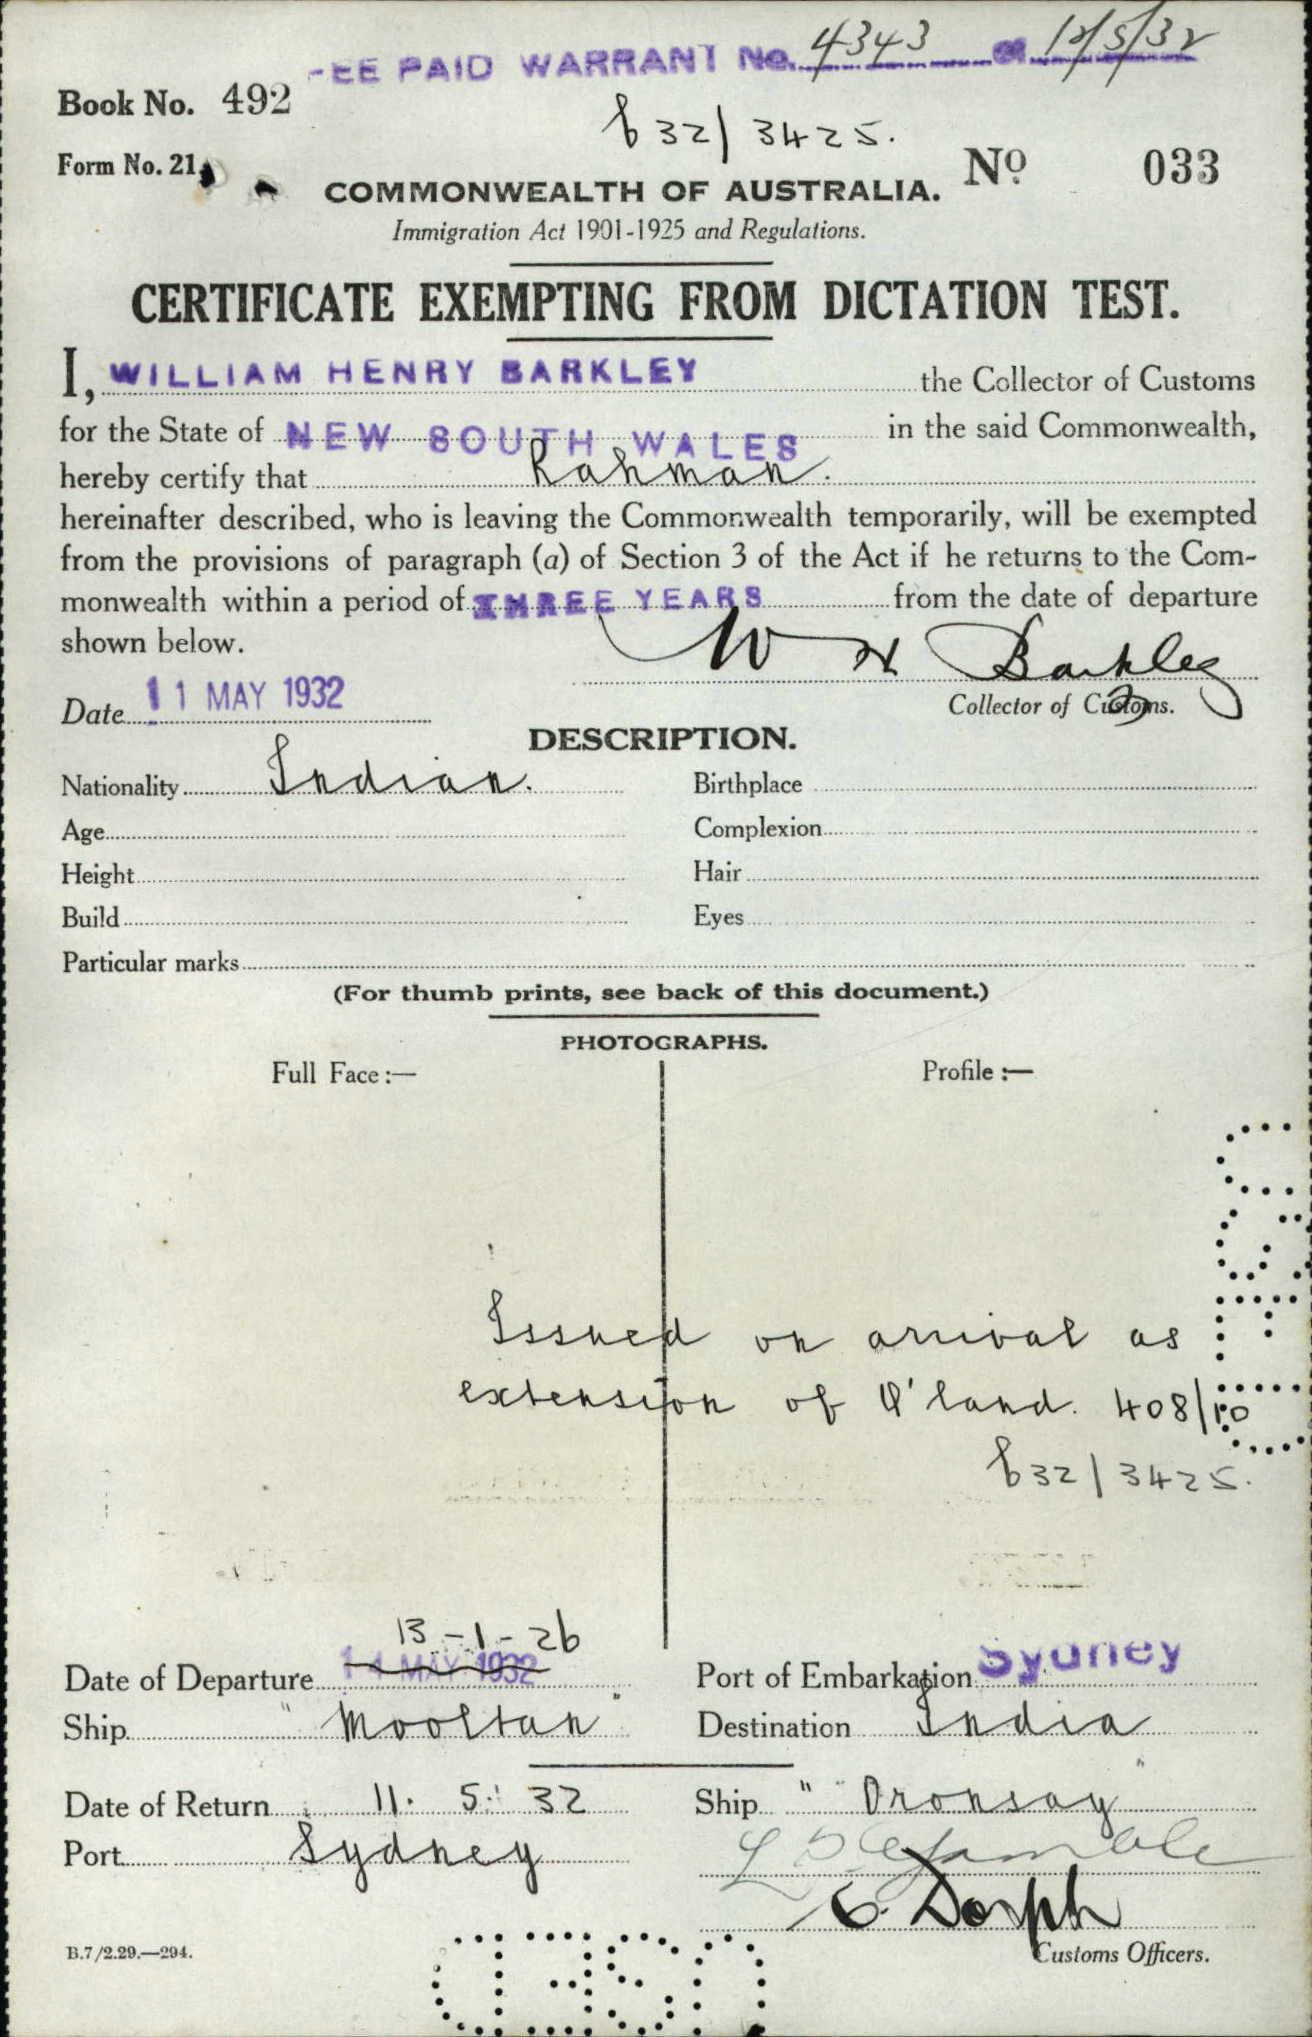 FEE PAID WARRANT No. 4343 of 12/5/32
Book No. 492
C 32/3425.
Form No. 21.
No 033
COMMONWEALTH OF AUSTRALIA.
Immigration Act 1901-1925 and Regulations.
CERTIFICATE EXEMPTING FROM DICTATION TEST.
I, WILLIAM HENRY BARKLEY the Collector of Customs
for the State of NEW SOUTH WALES in the said Commonwealth,
hereby certify that Rahman.
hereinafter described, who is leaving the Commonwealth temporarily, will be exempted
from the provisions of paragraph (a) of Section 3 of the Act if he returns to the Com-
monwealth within a period of THREE YEARS from the date of departure
shown below.
W H Barkley
Date 11 MAY 1932
Collector of Customs.
DESCRIPTION.
Nationality Indian. Birthplace
Age Complexion
Height Hair
Build Eyes
Particular marks
(For thumb prints, see back of this document.)
PHOTOGRAPHS.
Full Face:— Profile:—
Issued on arrival as
extension of Q'land. 408/10
C 32/3425.
13-1-26
Date of Departure 14 MAY 1932 Port of Embarkation Sydney
Ship "Mooltan" Destination India
Date of Return 11. 5. 32 Ship "Oronsay"
Port Sydney
C. Dorph
B.7/2.29.—294.
Customs Officers.
USED
USED